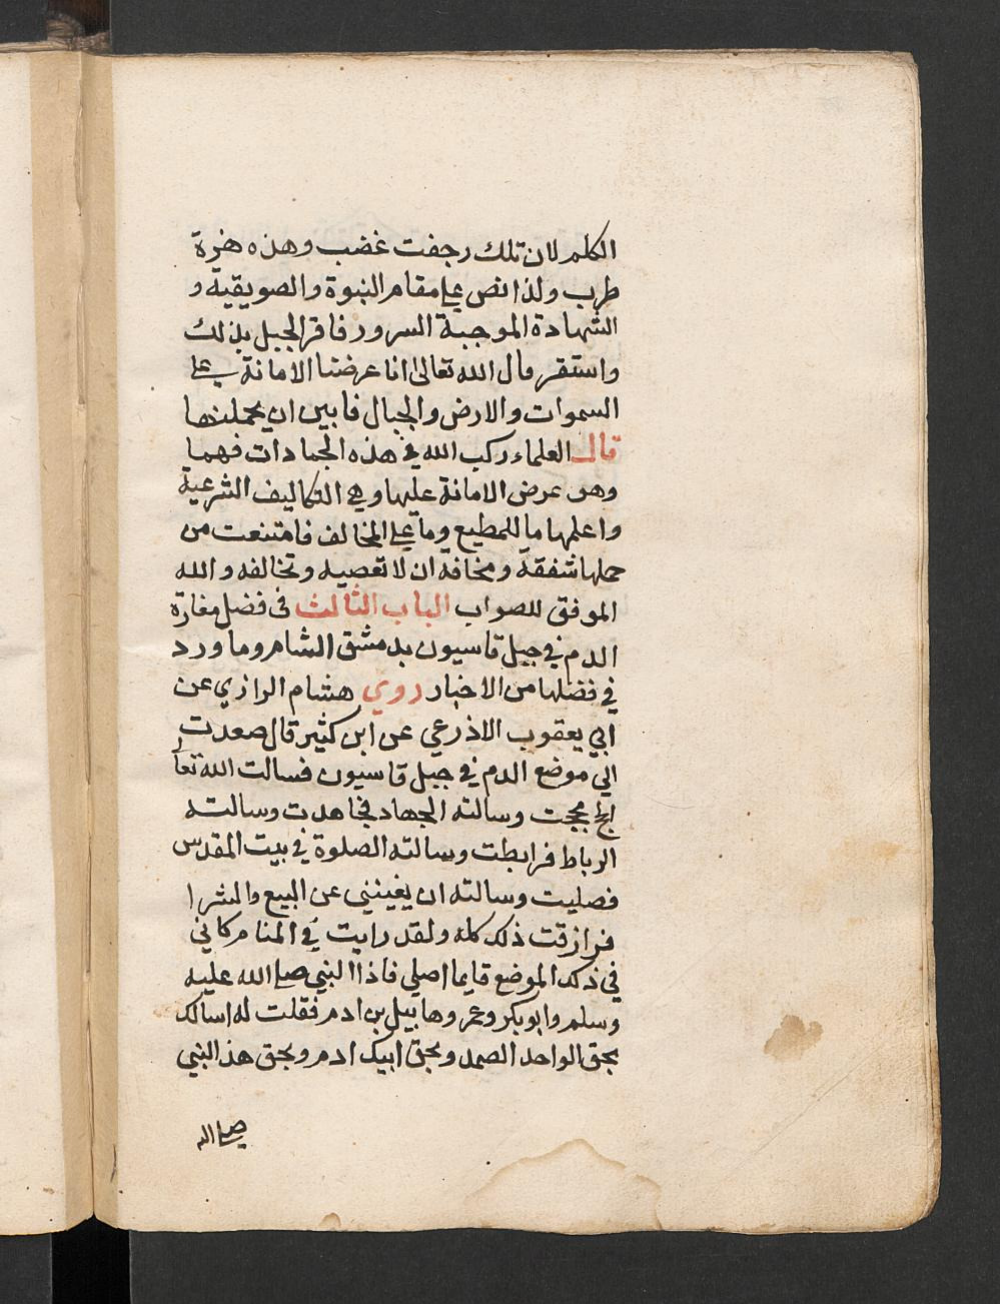 الكلم لان تلك رجفت غضب وهذه هزة
طرب ولذا نص علي مقام النبوة والصويقية و
الشهادة الموجبة السرور فاقر الجبل بذلك
واستقر قال الله تعالى انا عرضنا الامانة علي
السموات والارض والجبال فابين ان يحملنها
قال العلماء ركب الله في هذه الجمادات فهما
وهو عرض الامانة عليها وهي التكاليف الشرعية
واعلمها ما للمطيع وما علي المخالف فامتنعت من
حملها شفقة ومخافة ان لا تعصيه وتخالفه والله
الموفق للصواب الباب الثالث في فضل مغارة
الدم في جبل قاسيون بدمشق الشام وما ورد
في فضلها من الاخبار روي هشام الرازي عن
ابي يعقوب الاذرعي عن ابن كثير قال صعدت
الي موضع الدم في جبل قاسيون فسالت الله تعا
الحج فحججت وسالته الجهاد فجاهدت وسالته
الرباط فرابطت وسالته الصلوة في بيت المقدس
فصليت وسالته ان يغينني عن البيع والشرا
فرازقت ذلك كله ولقد رايت في المنام كاني
في ذلك الموضع قايما اصلي فاذا النبي صلي الله عليه
وسلم وابو بكر وعمر وهابيل بن ادم فقلت له اسالك
بحق الواحد الصمد وبحق ابيك ادم وبحق هذ النبي
صلي الله